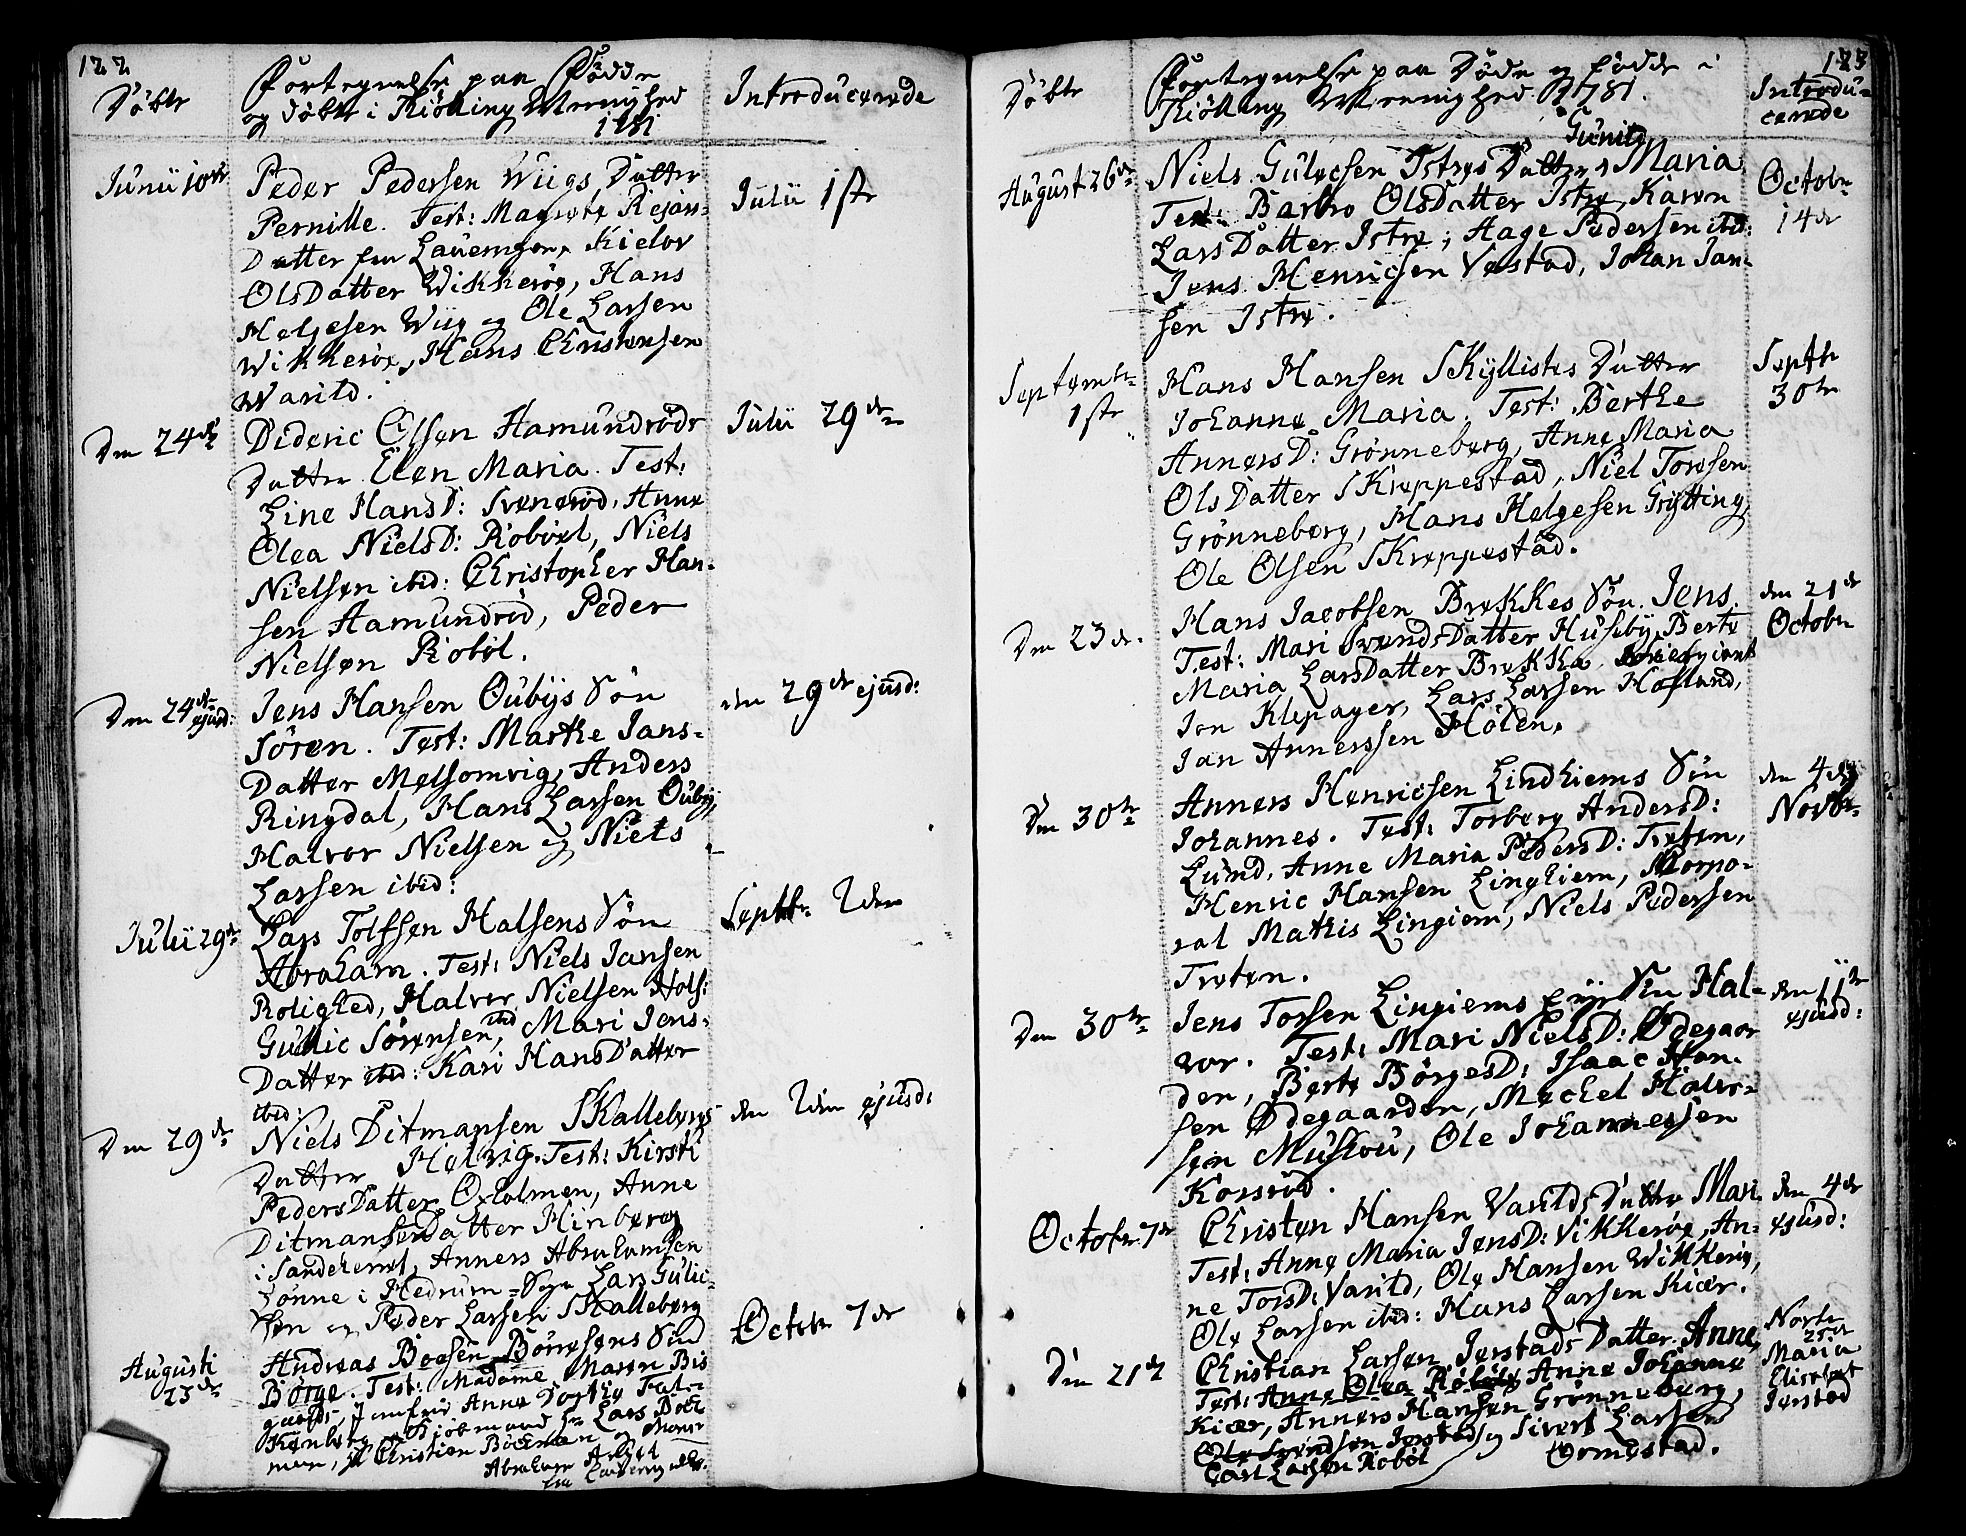 122
Döbte
Fortegnelse paa Födde
og döbte i Kiölling Menighed
1781
Introducerede
Junii 10de
Peder Pedersen Wiigs Datter
Pernille. Test: Magrete Rejers-
Datter fra Lauervigen, Kielov
OlsDatter Wikkeröe, Hans
Helgesen Wiig og Ole Larsen
Wikkeröe, Hans Christensen
Warild.
Julii 1ste
Den 24de
Dideric Olsen Hamundröds
Datter Elen Maria. Test:
Line HansD: Sveneröd, Anne
Olea NielsD: Röböel, Niels
Nielsen ibid: Christopher Han-
sen Hamundröd, Peder
Nielsen Röböl.
Julii 29de
Den 24de ejusd:
Jens Hansen Oubÿs Sön
Sören. Test: Marthe Jans-
Datter Melsomvig, Anders
Ringdal, Hans Larsen Oubÿ,
Halvor Nielsen og Niels
Larsen ibid:
den 29de ejusd:
Julii 29de
Lars Tolfsen Halsens Sön
Abraham. Test: Niels Jansen
Rolighed, Halvor Nielsen Hols:
Gullic Sörensen ibid, Mari Jens-
Datter ibid: Kari HansDatter
ibid:
Septbr 2den
Den 29de
Niels Ditmansen Skallebergs
Datter Helvig. Test: Kirsti
PedersDatter Oxholmen, Anne
DitmansenDatter Hinberg
i Sandeherret, Anners Abrahamsen
Lönne i Hedrum-Sogn Lars Gulic-
sen og Peder Larsen Skalleberg
den 2den ejusd:
Augusti
23de
Andreas Boesen Börresens Sön
Börge. Test: Madame Maren Bis
gaards, Jomfrue Anne Dorthe Fal-
Kenberg, Kiöbmand Hr Lars Boe
man, Hr Christian Böeman og Monsr
Abraham
fra
October 7de
123
Döbte
Fortegnelse paa Döde og födde i
Kiölling Menighed 1781.
Introdu-
cerede
August 26de
Gunild
Niels Gulicsen Istres Datter Maria
Test: Barbro OlsDatter Istre, Karen
LarsDatter Istre; Aage Pedersen ibid:
Jens Henricsen Vestad, Johan Jan-
sen Istre.
Octobr
14de
Septembr
1ste
Hans Hansen Skÿllistes Datter
Johanne Maria. Test: Berthe
AnnersD: Grönneberg, Anne Maria
OlsDatter Skreppestad, Niel Toresen
Grönneberg, Hans Helgesen Gristting,
Ole Olsen Skreppestad.
Septbr
30te
Den 23de.
Hans Jacobsen Brekkes Sön. Jens.
Test: Mari SvendsDatter Husebÿ, Berte
Maria LarsDatter Brekka
Jon Klepager, Lars Larsen Hofland,
Jan Annerssen Holen,
den 21de
October
Den 30te
Anners Henricsen Lindhiems Sön
Johannes. Test: Torberg AndersD:
Lund, Anne Maria PedersD: Treten,
Henric Hansen Linghiem, Korpo-
ral Mathis Lingiem, Niels Pedersen
Treten.
den 4de
Novbr
Den 30te
Jens Torsen Lingiems Sön Hal-
vor. Test: Mari NielsD: Ödegaar
den, Berte BörgesD: Isaac Han-
sen Ödegaarden, Mechel Halvor-
sen Muskou, Ole Johannessen
Korsröd.
den 11te
ejusd:
October 7de
Christen Hansen Varilds Datter Mari
Test: Anne Maria JensD: Vikkeröe, An-
ne TorsD: Varild, Ole Hansen Wikkeröe,
Ole Larsen ibid: Hans Larsen Kiær.
den 4de
ejusd:
Den 21de
Christian Larsen Jerstads Datter Anne,
Test: Anne Olea Röböle Anne Johanne
Kiær, Anners Hansen Grönneberg,
Ole Svendsen Jerstad og Sivert Larsen
Carl Larsen Röböl
Ormestad.
Novbr
25de
Maria
Elisabet
Jerstad